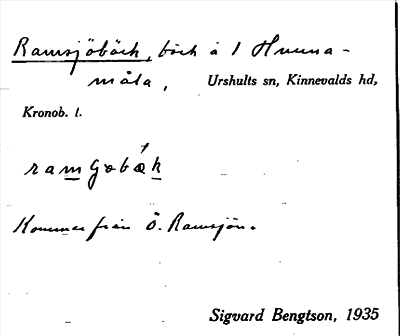 Ramsjöbäck, bäck å 1 Hunna-
måla, Urshults sn, Kinnevalds hd,
Kronob. l.
Kommer från Ö. Ramsjön.
Sigvard Bengtson, 1935